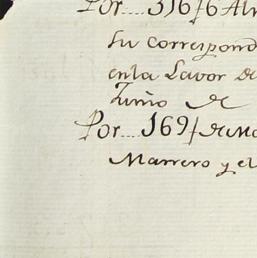 Por.... 316/6 Al
su correspond
en la Lavor de
Junio de
Por.... 169/ de Ma
Marrero y el